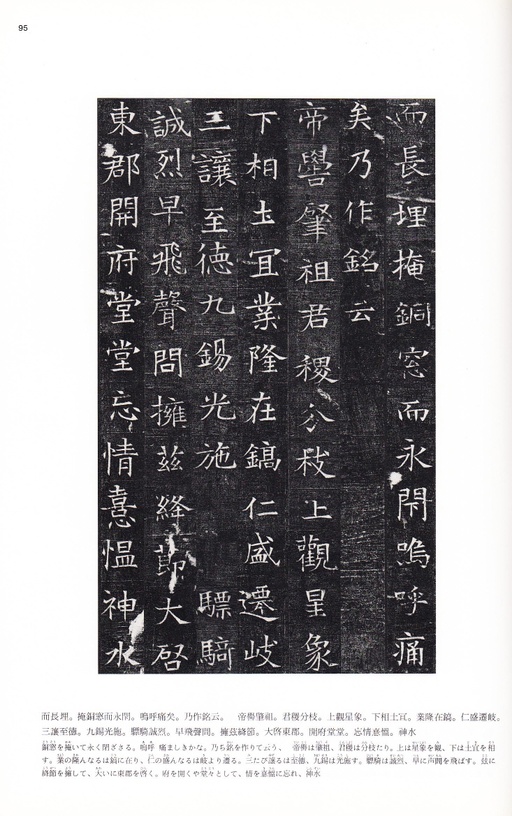 95
而長埋掩銅窓而永閇嗚呼痛
矣乃作銘云
帝嚳肇祖君稷分枝上觀星象
下相土宜業隆在鎬仁盛遷岐
三讓至德九錫光施 驃騎
誠烈早飛聲問擁茲絳節大啓
東郡開府堂堂忘情憙慍神水
而長埋。掩銅窓而永閇。嗚呼痛矣。乃作銘云。 帝嚳肇祖。君稷分枝。上觀星象。下相土宜。業隆在鎬。仁盛遷岐。
三讓至德。九錫光施。驃騎誠烈。早飛聲問。擁茲絳節。大啓東郡。開府堂堂。忘情憙慍。神水
銅窓を掩いて永く閇ざさる。嗚呼 痛ましきかな。乃ち銘を作りて云う、 帝嚳は肇祖、君稷は分枝たり。上は星象を観、下は土宜を相
す。業の隆んなるは鎬に在り、仁の盛んなるは岐より遷る。三たび譲るは至徳、九錫は光施す。驃騎は誠烈、早に声問を飛ばす。茲に
絳節を擁して、大いに東郡を啓く。府を開くや堂々として、情を憙慍に忘れ、神水